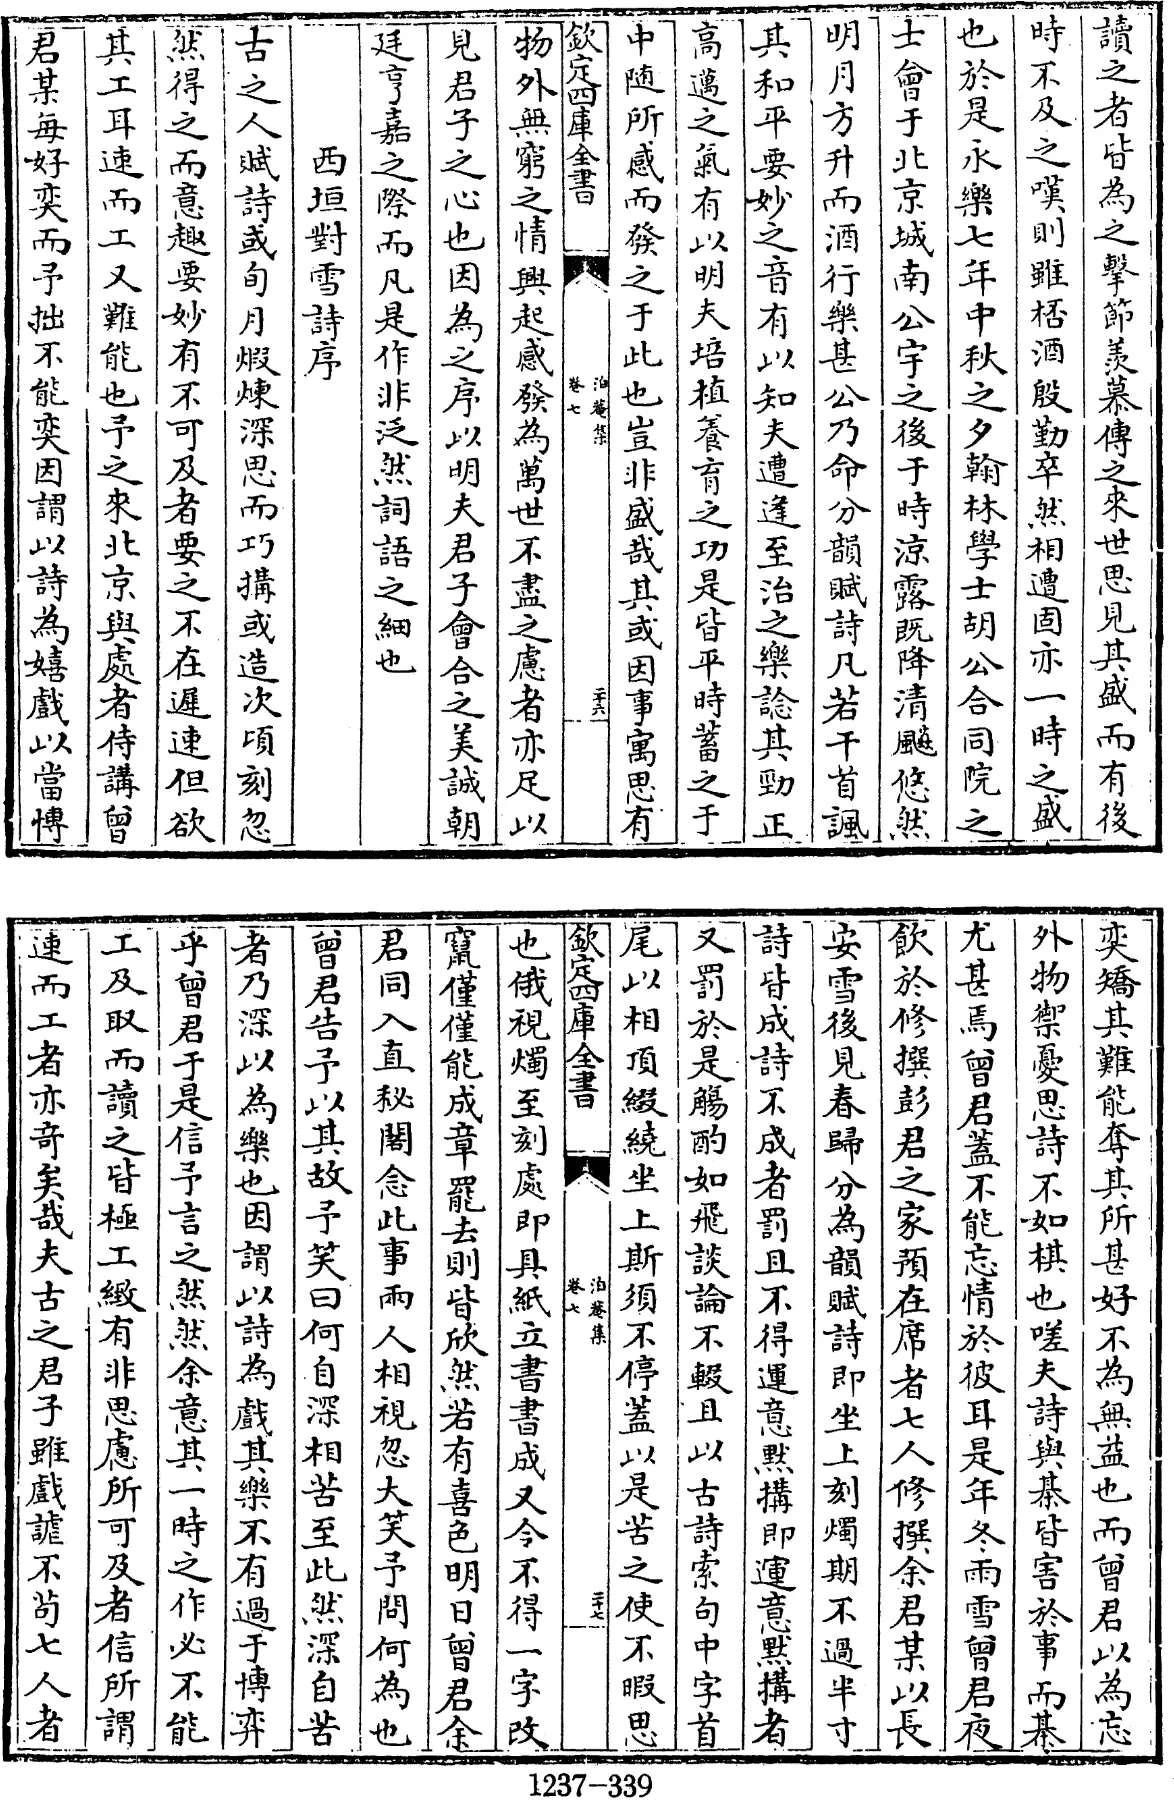 讀之者皆為之擊節羨慕傳之來世思見其盛而有後
時不及之嘆則雖桮酒殷勤卒然相遭固亦一時之盛
也於是永樂七年中秋之夕翰林學士胡公合同院之
士會于北京城南公宇之後于時涼露既降清飈悠然
明月方升而酒行樂甚公乃命分韻賦詩凡若干首諷
其和平要妙之音有以知夫遭逢至治之樂諗其勁正
高邁之氣有以明夫培植養育之功是皆平時蓄之于
中随所感而發之于此也豈非盛哉其或因事寓思有
欽定四庫全書
泊菴集
卷七
二十六
物外無窮之情興起感發為萬世不盡之慮者亦足以
見君子之心也因為之序以明夫君子會合之美誠朝
廷亨嘉之際而凡是作非泛然詞語之細也
西垣對雪詩序
古之人賦詩或旬月煅煉深思而巧搆或造次頃刻忽
然得之而意趣要妙有不可及者要之不在遲速但欲
其工耳速而工又難能也予之來北京與處者侍講曾
君某每好奕而予拙不能奕因謂以詩為嬉戲以當博
奕矯其難能奪其所甚好不為無益也而曾君以為忘
外物禦憂思詩不如棋也嗟夫詩與棊皆害於事而棊
尤甚焉曾君蓋不能忘情於彼耳是年冬雨雪曾君夜
飲於修撰彭君之家預在席者七人修撰余君某以長
安雪後見春歸分為韻賦詩即坐上刻燭期不過半寸
詩皆成詩不成者罰且不得運意默搆即運意默搆者
又罰於是觴酌如飛談論不輟且以古詩索句中字首
尾以相頂綴繞坐上斯須不停蓋以是苦之使不暇思
欽定四庫全書
泊菴集
卷七
二十七
也俄視燭至刻處即具紙立書書成又令不得一字改
竄僅僅能成章罷去則皆欣然若有喜色明日曾君余
君同入直秘閣念此事兩人相視忽大笑予問何為也
曾君告予以其故予笑曰何自深相苦至此然深自苦
者乃深以為樂也因謂以詩為戲其樂不有過于博弈
乎曾君于是信予言之然然余意其一時之作必不能
工及取而讀之皆極工緻有非思慮所可及者信所謂
速而工者亦奇矣哉夫古之君子雖戲謔不苟七人者
1237-339